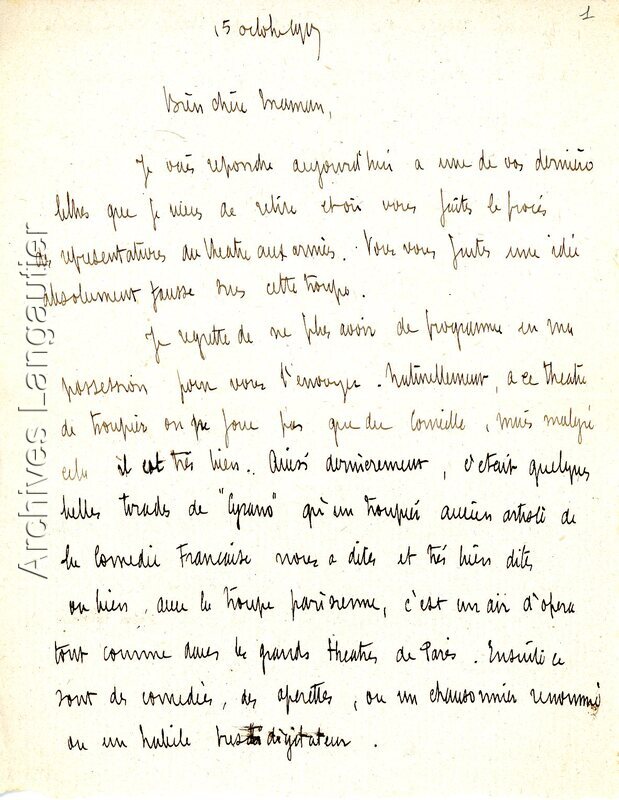 1
15 octobre 1917
Bien chère Maman,
Je vais repondre aujourd'hui a une de vos dernières
lettres que je viens de relire et où vous faites le procès
des representatives du theatre aux armées. Vous vous faites une idée
absolument fausse sur cette troupe.
Je regrette de ne plus avoir de programme en ma
possession pour vous l'envoyer. Naturellement, a ce theatre
de troupier on ne joue pas que du Corneille, mais malgré
cela il est très bien.. Ainsi dernierement, c'etait quelques
belles tirades de "Cyrano" qu'un troupier ancien artiste de
la Comedie Française nous a dites et très bien dites
ou bien, avec la troupe parisienne, c'est un air d'opera
tout comme dans les grands theatres de Paris. Ensuite ce
sont des comedies, des operettes, ou un chansonnier renommé
ou un habile prestidigitateur.
Archives Langautier